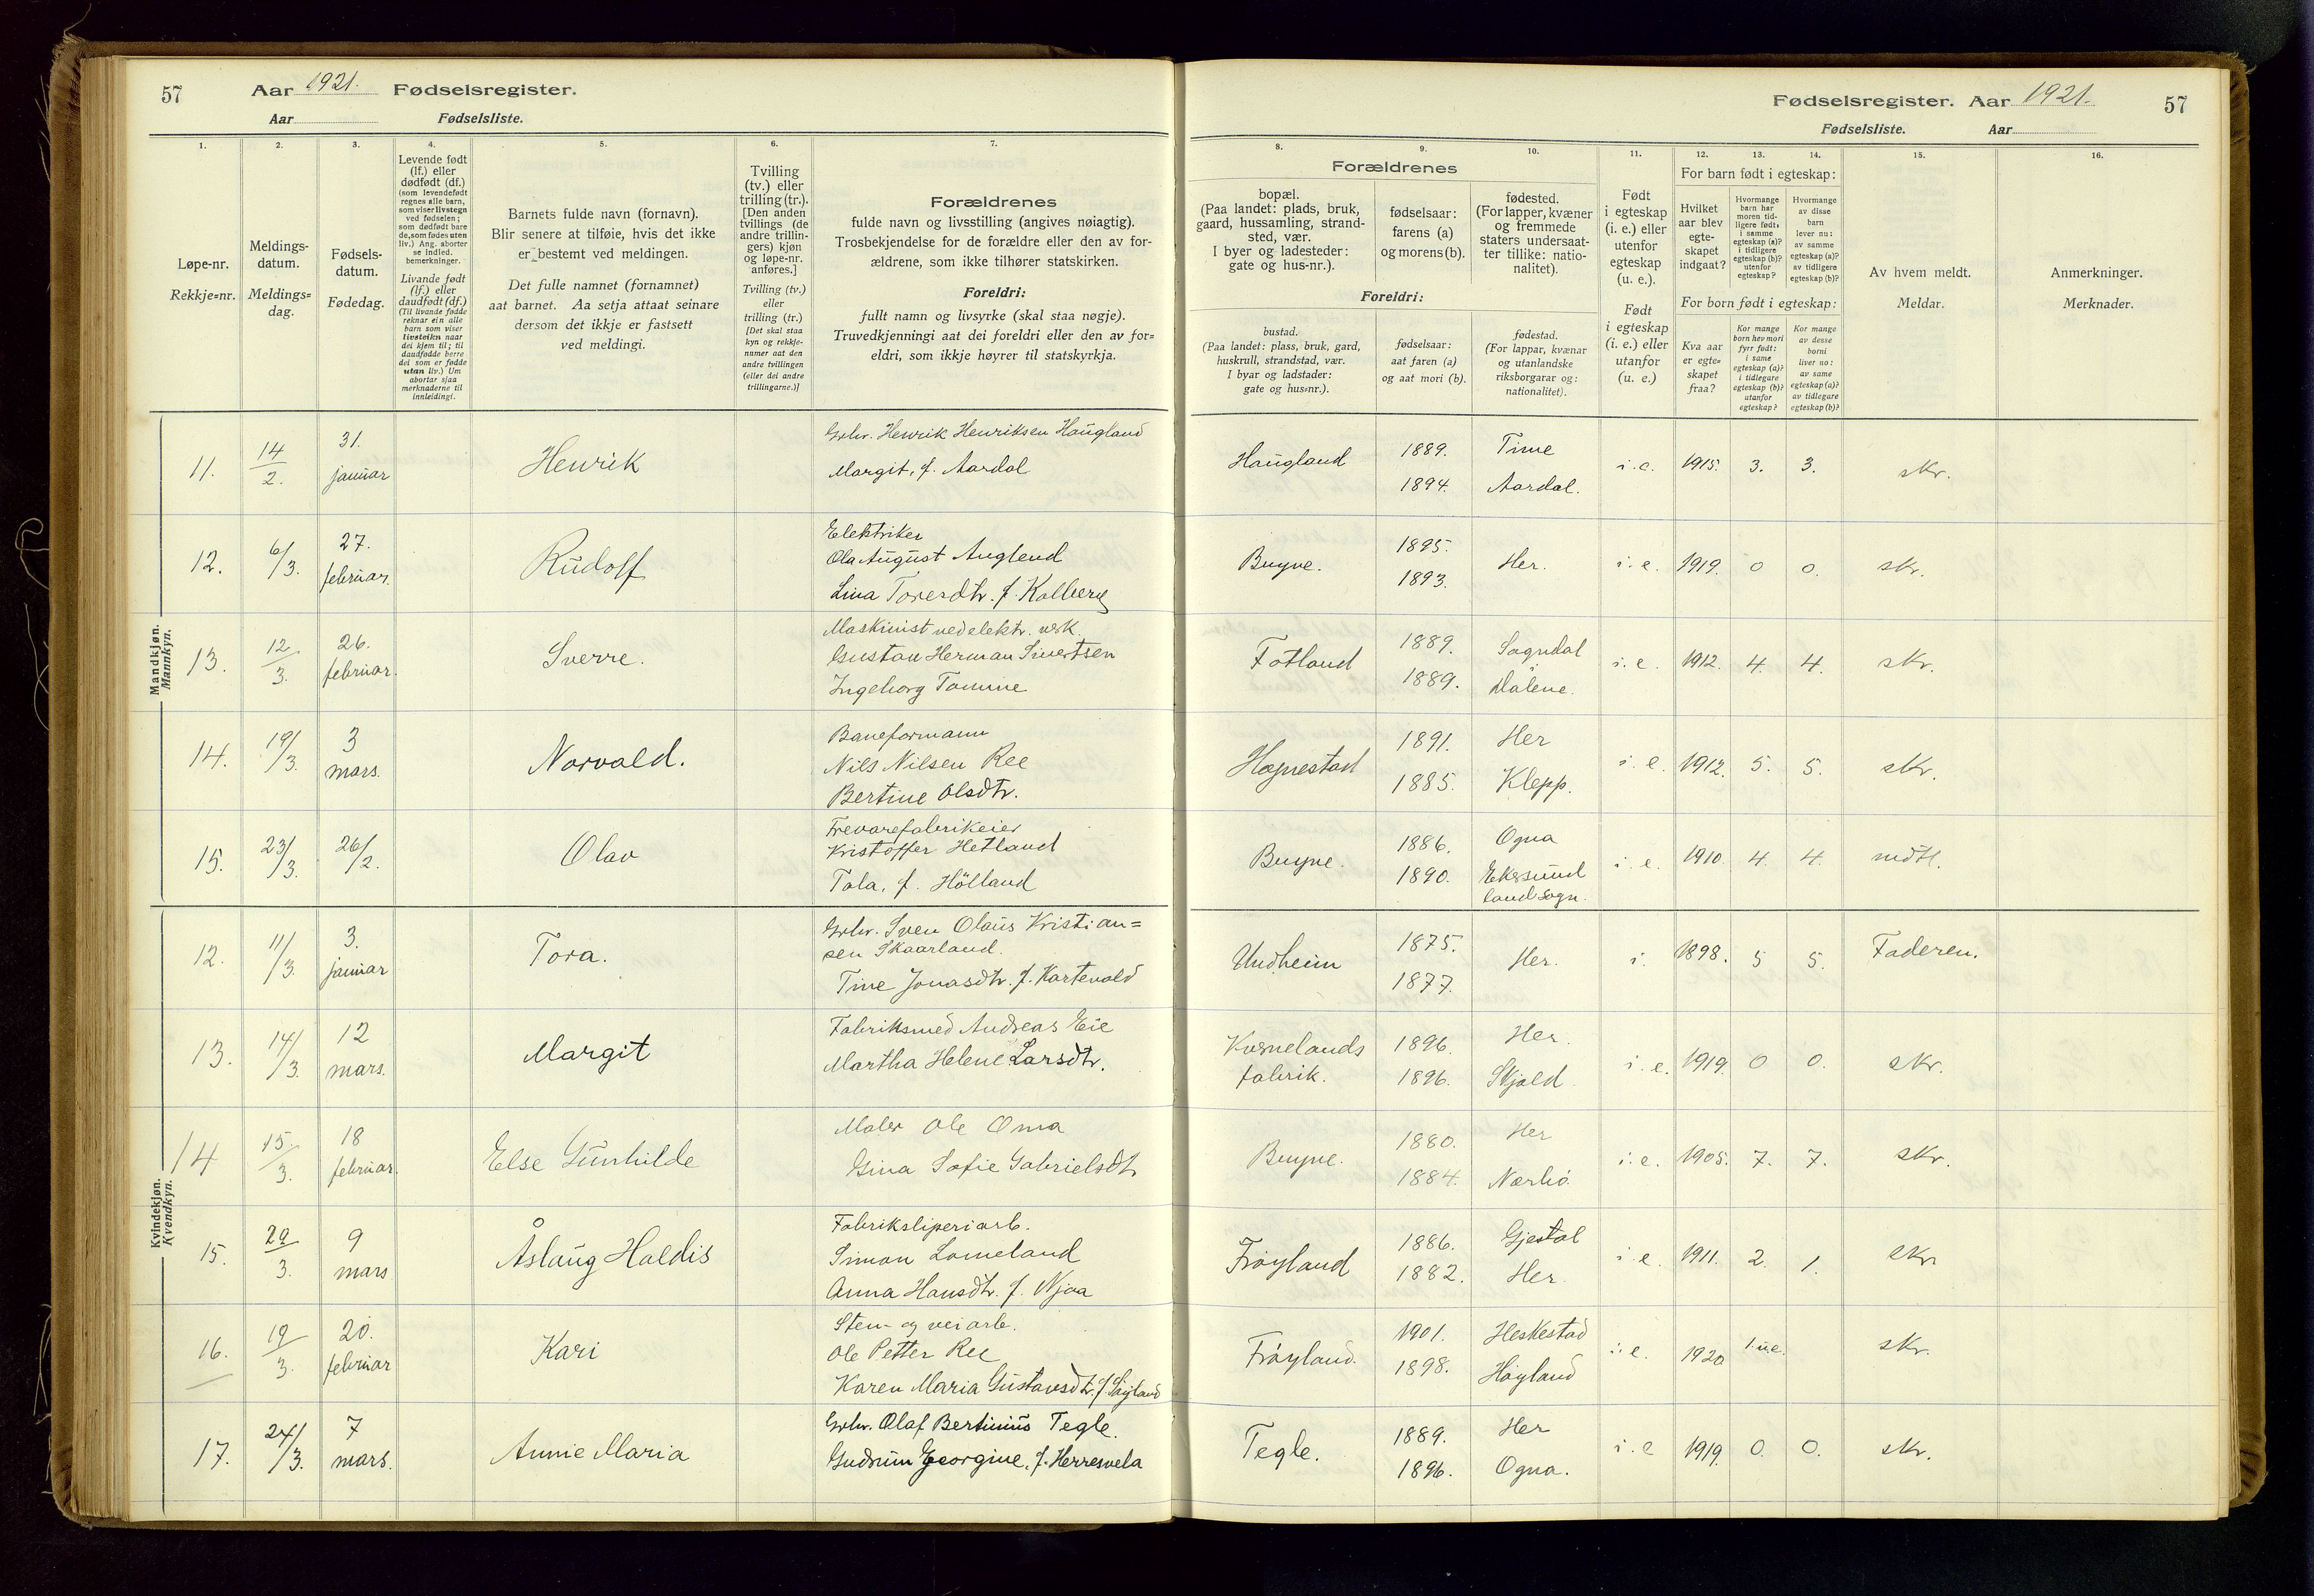 57
Aar 1921. Fødselsregister.
Aar Fødselsliste.
Fødselsregister. Aar 1921.
57
Fødselsliste. Aar
1. 2. 3. 4. 5. 6. 7.
Løpe-nr.
Rekkje=nr.
Meldings-
datum.
Meldings=
dag.
Fødsels-
datum.
Fødedag.
Levende født
(lf.) eller
dødfødt (df.)
(som levendefødt
regnes alle barn,
som viser livstegn
ved fødselen;
som dødfødt bare
de, som fødes uten
liv.) Ang. aborter
se indled.
bemerkninger.
Livande født
(lf.) eller
daudfødt (df.)
(Til livande fødde
reknar ein alle
barn som viser
livsteikn naar
dei kjem til; til
daudfødde berre
dei som er fødde
utan liv.) Um
abortar sjaa
merknaderne til
innleidingi.
Barnets fulde navn (fornavn).
Blir senere at tilføie, hvis det ikke
er bestemt ved meldingen.
Det fulle namnet (fornamnet)
aat barnet. Aa setja attaat seinare
dersom det ikkje er fastsett
ved meldingi.
Tvilling
(tv.) eller
trilling (tr.).
[Den anden
tvillings (de
andre trillin-
gers) kjøn
og løpe-nr.
anføres.]
Tvilling (tv.)
eller
trilling (tr.)
[Det skal staa
kyn og rekkje-
numer aat den
andre tvillingen
(eller dei andre
trillingarne.)]
Forældrenes
fulde navn og livsstilling (angives nøiagtig).
Trosbekjendelse for de forældre eller den av for-
ældrene, som ikke tilhører statskirken.
Foreldri:
fullt namn og livsyrke (skal staa nøgje).
Truvedkjenningi aat dei foreldri eller den av for=
eldri, som ikkje høyrer til statskyrkja.
8. 9. 10. 11. 12. 13. 14. 15. 16.
Forældrenes
bopæl.
(Paa landet: plads, bruk,
gaard, hussamling, strand-
sted, vær.
I byer og ladesteder:
gate og hus-nr.).
fødselsaar:
farens (a)
og morens (b).
fødested.
(For lapper, kvæner
og fremmede
staters undersaat-
ter tillike: natio-
nalitet).
Foreldri:
bustad.
(Paa landet: plass, bruk, gard,
huskrull, strandstad, vær.
I byar og ladstader:
gate og hus=nr.).
fødselsaar:
aat faren (a)
og aat mori (b).
fødestad.
(For lappar, kvænar
og utanlandske
riksborgarar og:
nationalitet).
Født
i egteskap
(i. e.) eller
utenfor
egteskap
(u. e.).
Født
i egteskap
(i. e.) eller
utanfor
(u. e.)
For barn født i egteskap:
Hvilket
aar blev
egte-
skapet
indgaat?
Hvormange
barn har
moren tid-
ligere født:
i samme
egteskap (a)?
i tidligere
egteskap (b)?
utenfor
egteskap?
Hvormange
av disse
barn
lever nu:
av samme
egteskap (a)?
av tidligere
egteskap (b)?
For born født i egteskap:
Kva aar
er egte=
skapet
fraa?
Kor mange
born hev mori
fyrr født:
i same
egteskap (a)?
i tidlegare
egteskap (b)?
utanfor
egteskap?
Kor mange
av desse
borni
liver no:
av same
egteskap (a)?
av tidlegare
egteskap (b)?
Av hvem meldt.
Meldar.
Anmerkninger.
Merknader.
Mandkjøn.
Mannkyn.
11. 14/2. 31. januar Henrik Grbr. Henrik Henriksen Haugland
Margit, f. Aardal
Haugland 1889. 1894. Time Aardal. i. e. 1915. 3. 3. skr.
12. 6/3. 27. februar. Rudolf Elektriker
Ola August Anglend
Lina Toresdtr. f. Kalberg
Bryne. 1895. 1893. Her. i. e. 1919. 0 0. skr.
13. 12/3. 26. februar. Sverre. Maskinist ved elektr. verk.
Gustav Herman Sivertsen
Ingeborg Tomine
Fotland 1889. 1889. Sogndal Dalene. i. e. 1912. 4. 4. skr.
14. 19/3. 3 mars. Norvald. Baneformann
Nils Nilsen Ree
Bertine Olsdtr.
Hognestad 1891. 1885. Her Klepp. i. e. 1912. 5. 5. skr.
15. 23/3. 26/2. Olav Trevarefabrikeier
Kristoffer Hetland
Tala, f. Hölland
Bryne. 1886. 1890. Ogna Ekersund landsogn. i. e. 1910. 4. 4. mdtl.
Kvindekjøn.
Kvendkyn.
12. 11/3. 3. januar Tora. Grbr. Sven Olaus Kristian=
sen Skaarland.
Tine Jonasdtr. f. Kartevold
Undheim 1875. 1877. Her. i. 1898. 5 5. Faderen.
13. 14/3. 12 mars. Margit Fabriksmed Andreas Eie
Martha Helene Larsdtr.
Kvernelands fabrik. 1896. 1896. Her. Skjold. i. e. 1919. 0 0. skr.
14 15/3. 18 februar. Else Gunhilde Maler Ole Oma
Gina Sofie Gabrielsdtr
Bryne. 1880. 1884. Her Nærbö. i. e. 1905. 7. 7. skr.
15. 29/3. 9 mars Åslaug Haldis Fabriksliperiarb.
Simon Lomeland
Anna Hansdtr. f. Njaa
Fröyland 1886. 1882. Gjestal Her. i. e. 1911. 2. 1. skr
16. 19/3. 20. februar Kari Sten- og veiarb.
Ole Petter Ree
Karen Maria Gustavsdtr. f.
Fröyland. 1901. 1898. Heskestad Höyland i. e. 1920 1. u. e. skr.
17. 24/3. 7 mars. Annie Maria Grbr. Olaf Bertinius Tegle.
Gudrun Georgine, f. Herresvela
Tegle. 1889. 1896. Her Ogna. i. e 1919. 0. 0. skr.